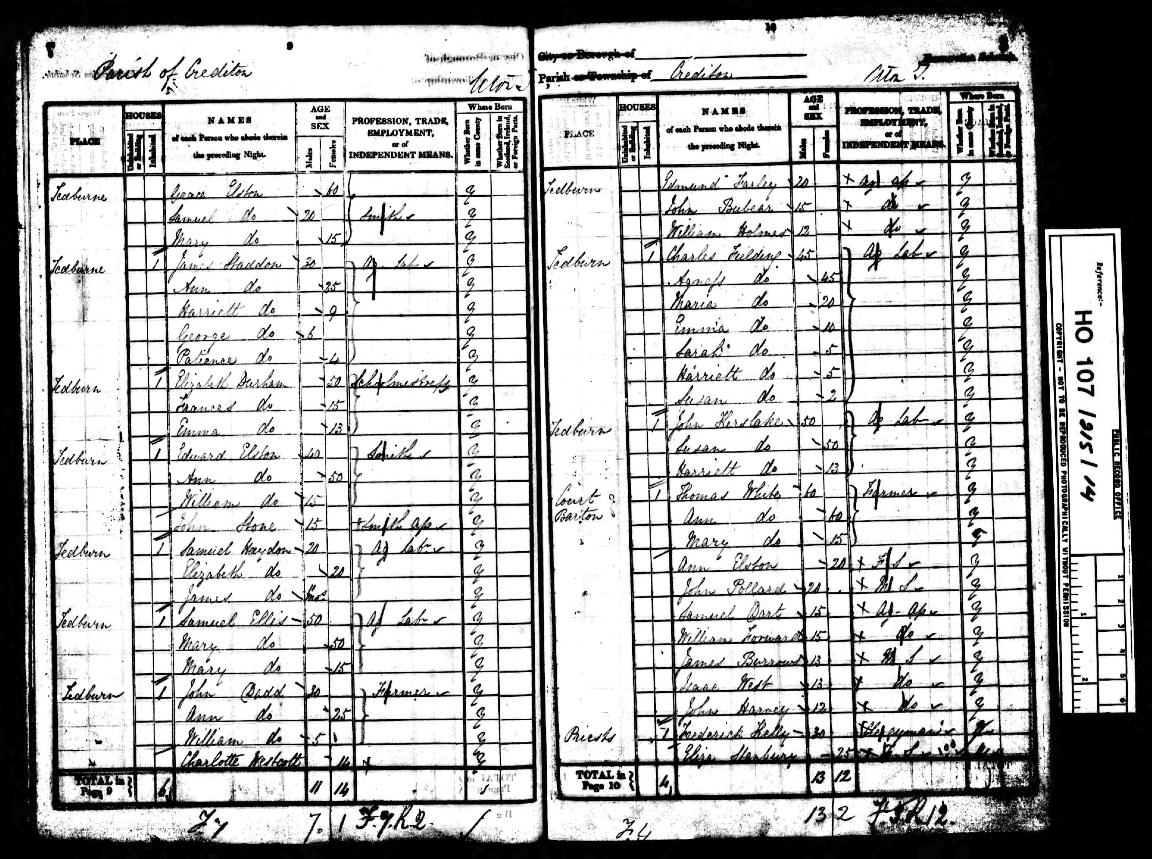 7
9
Parish of Crediton
PLACE
HOUSES
Uninhabited or Building
Inhabited
NAMES
of each Person who abode therein
the preceding Night.
AGE and SEX
Males
Females
PROFESSION, TRADE,
EMPLOYMENT,
or of
INDEPENDENT MEANS.
Where Born
Whether Born in same County
Whether Born in Scotland, Ireland, or Foreign Parts.
Tedburne Grace Elston 60 y
Samuel do 20 Smith y
Mary do 15 y
Tedburne 1 James Staddon 30 Ag Lab y
Ann do 25 y
Harriett do 9 y
George do 6 y
Patience do 4 y
Tedburn 1 Elizabeth Durham 50 Schoolmistress y
Frances do 15 y
Emma do 13 y
Tedburn 1 Edward Elston 40 Smith y
Ann do 50 y
William do 15 y
John Stone 15 Smith ap y
Tedburn 1 Samuel Haydon 20 Ag Lab y
Elizabeth do 20 y
James do y
Tedburn 1 Samuel Ellis 50 Ag Lab y
Mary do 50 y
Mary do 15 y
Tedburn 1 John Dodd 30 Farmer y
Ann do 25 y
William do 5 y
Charlotte Westcott 14 y
TOTAL in Page 9 6 11 14
10
8
City or Borough of
Parish or Township of Crediton
PLACE
HOUSES
Uninhabited or Building
Inhabited
NAMES
of each Person who abode therein
the preceding Night.
AGE and SEX
Males
Females
PROFESSION, TRADE,
EMPLOYMENT,
or of
INDEPENDENT MEANS.
Where Born
Whether Born in same County
Whether Born in Scotland, Ireland, or Foreign Parts.
Tedburn Edmund Farley 20 Ag ap y
John Bubear 15 do y
William Holmes 12 do y
Tedburn 1 Charles Fielding 45 Ag Lab y
Agness do 45 y
Maria do 20 y
Emma do 10 y
Sarah do 5 y
Harriett do 5 y
Susan do 2 y
Tedburn 1 John Kerslake 50 Ag Lab y
Susan do 50 y
Harriett do 13 y
Court 1 Thomas White 60 Farmer y
Barton Ann do 60 y
Mary do 15 y
Ann Elston 20 F S y
John Pollard 20 M S y
Samuel Dart 15 Ag ap y
William Forward 15 do y
James Burrows 13 M S y
Isaac West 13 do y
John Harvey 12 do y
Priests 1 Frederick Kelly 30 Clergyman y
Eliza Stanbury 25 F S
TOTAL in Page 10 4 13 12
13 2
Reference:-
HO 107 /215/ 14
PUBLIC RECORD OFFICE
COPYRIGHT - NOT TO BE REPRODUCED PHOTOGRAPHICALLY WITHOUT PERMISSION